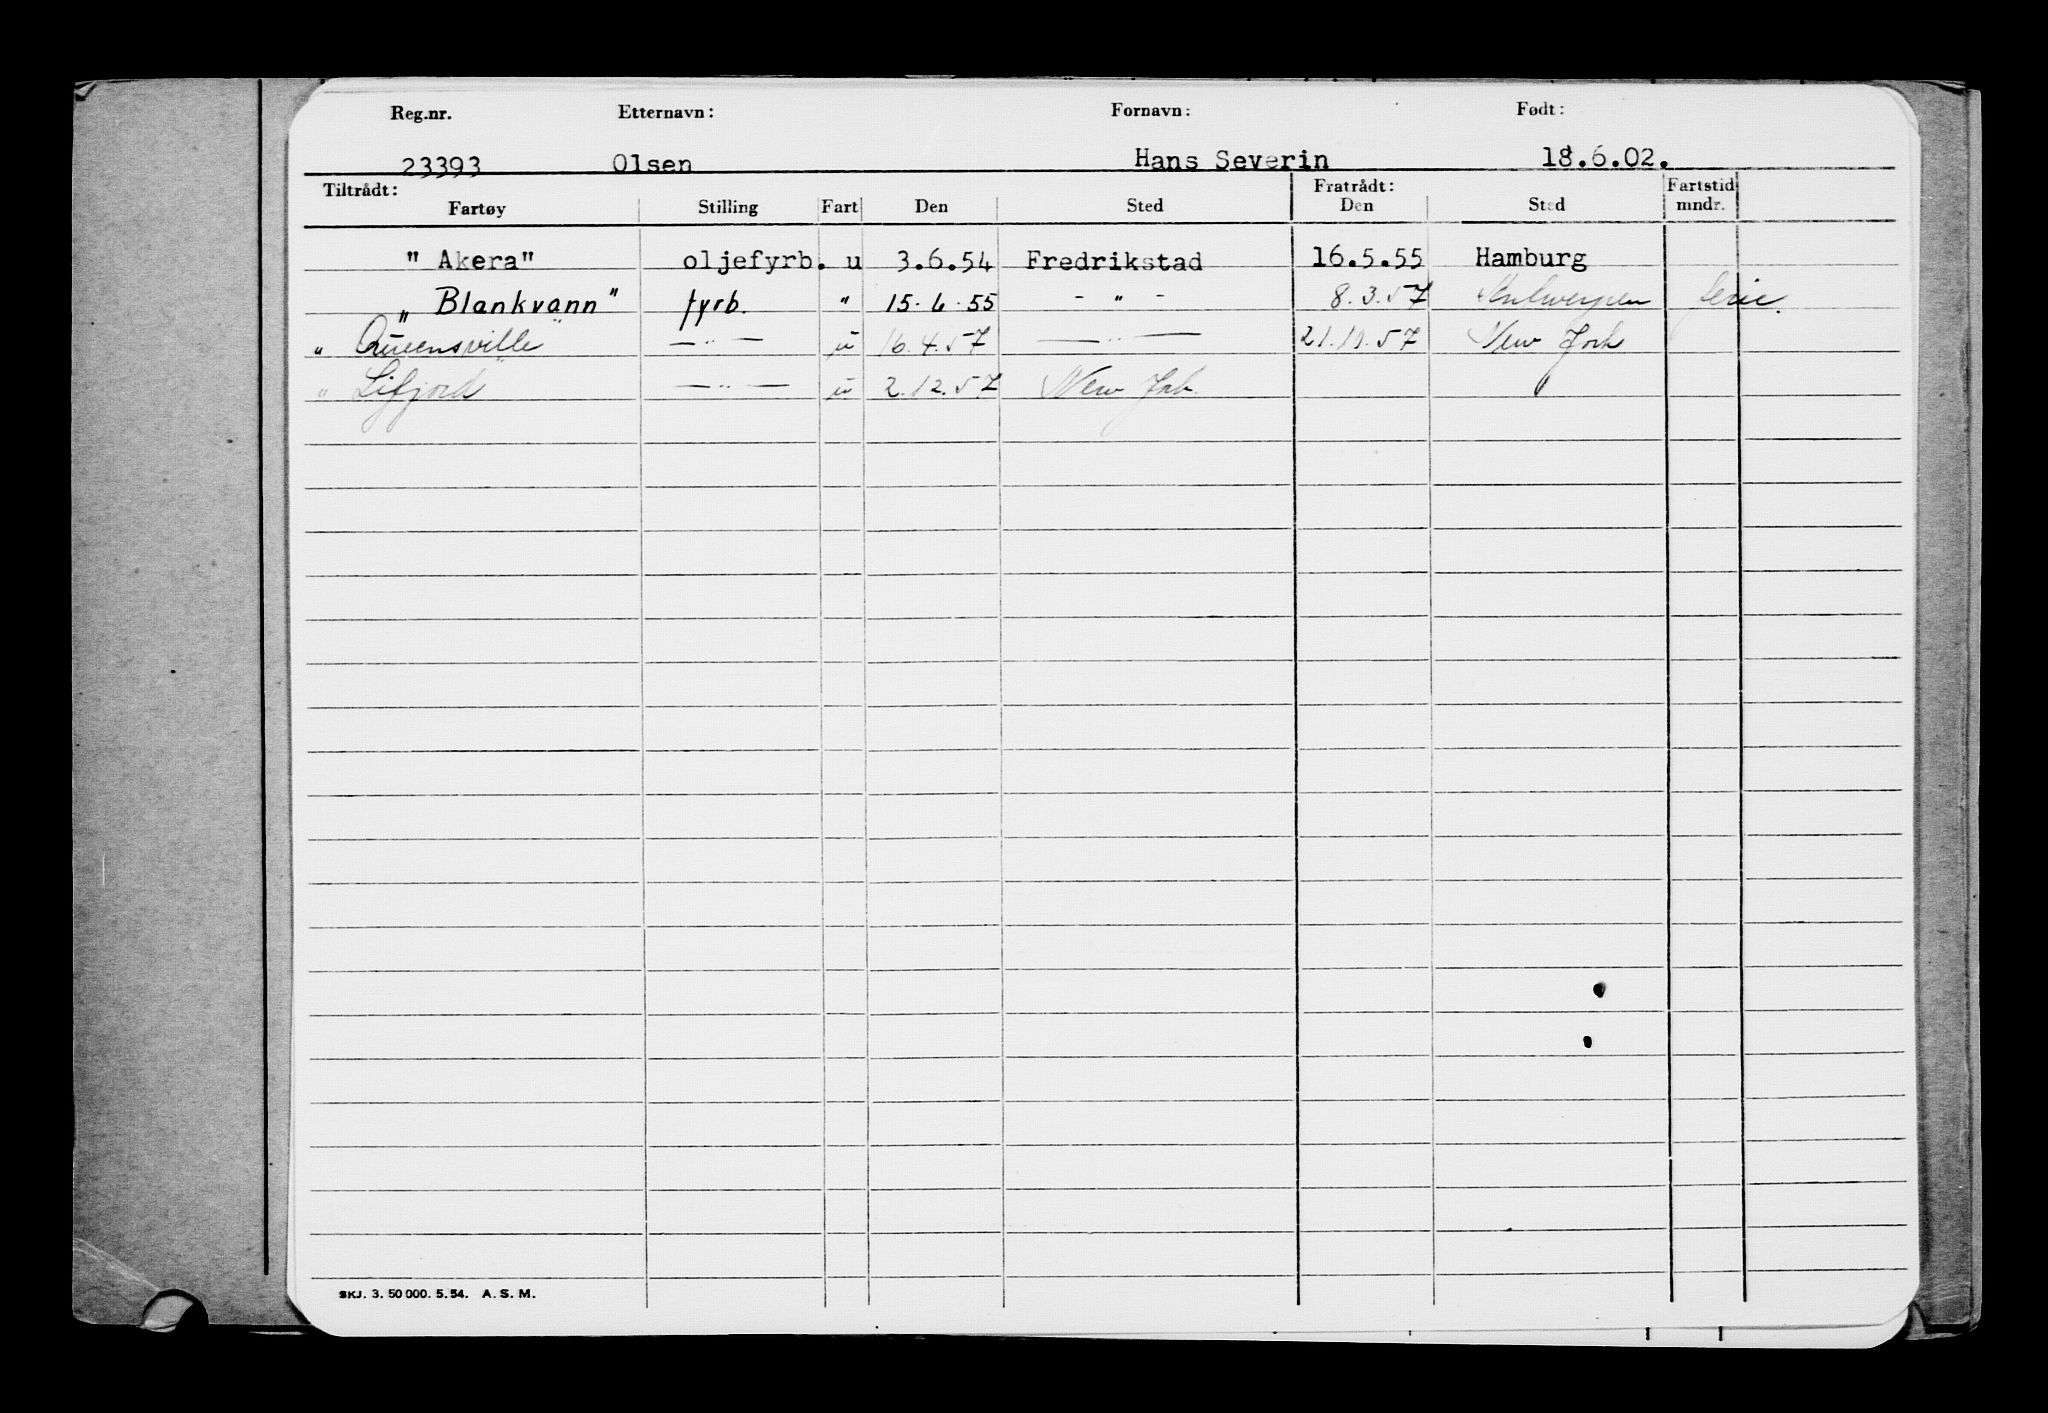 Reg.nr. Etternavn: Fornavn: Født:
23393 Olsen Hans Severin 18.6.02.
Tiltrådt: Fratrådt: Fartstid
Fartøy Stilling Fart Den Sted Den Sted mndr.
" Akera" oljefyrb. u 3.6.54 Fredrikstad 16.5.55 Hamburg
„ Blankvann" fyrb. " 15.6.55 - " - 8.3.57 Antwerpen ferie.
" Queensville" — " — u 16.4.57 — " — 21.11.57 New York
" Lifjord" — " — u 2.12.57 New York
SKJ. 3. 50 000. 5. 54. A. S. M.